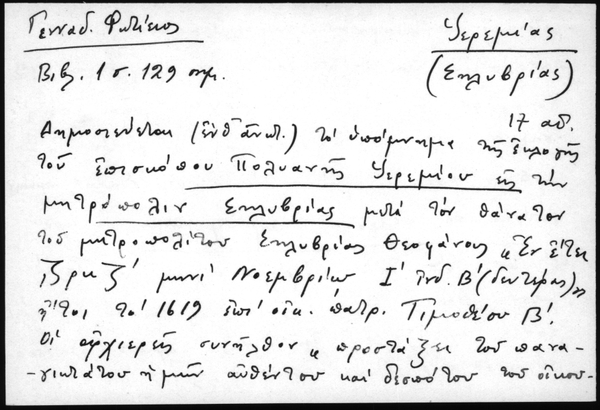 Γενναδ. Φωτίειος
Ἱερεμίας
Βιβλ. 1 σ. 129 σημ.
(Σηλυβρίας)
17 αἰ.
Δημοσιεύεται (ἔνθ' ἀνωτ.) τὸ ὑπόμνημα τῆς ἐκλογῆς
τοῦ ἐπισκόπου Πολυανῆς Ἱερεμίου εἰς τὴν
μητρόπολιν Σηλυβρίας μετὰ τὸν θάνατον
τοῦ μητροπολίτου Σηλυβρίας Θεοφάνους "Ἐν ἔτει
͵ζρκζ' μηνὶ Νοεμβρίῳ Ι' ἰνδ. Β' (δευτέρας)"
ἤτοι τὸ 1619 ἐπὶ οἰκ. πατρ. Τιμοθέου Β'.
Οἱ ἀρχιερεῖς συνῆλθον "προστάξει τοῦ πανα-
-γιωτάτου ἡμῶν αὐθέντου καὶ δεσπότου τοῦ οἰκου-